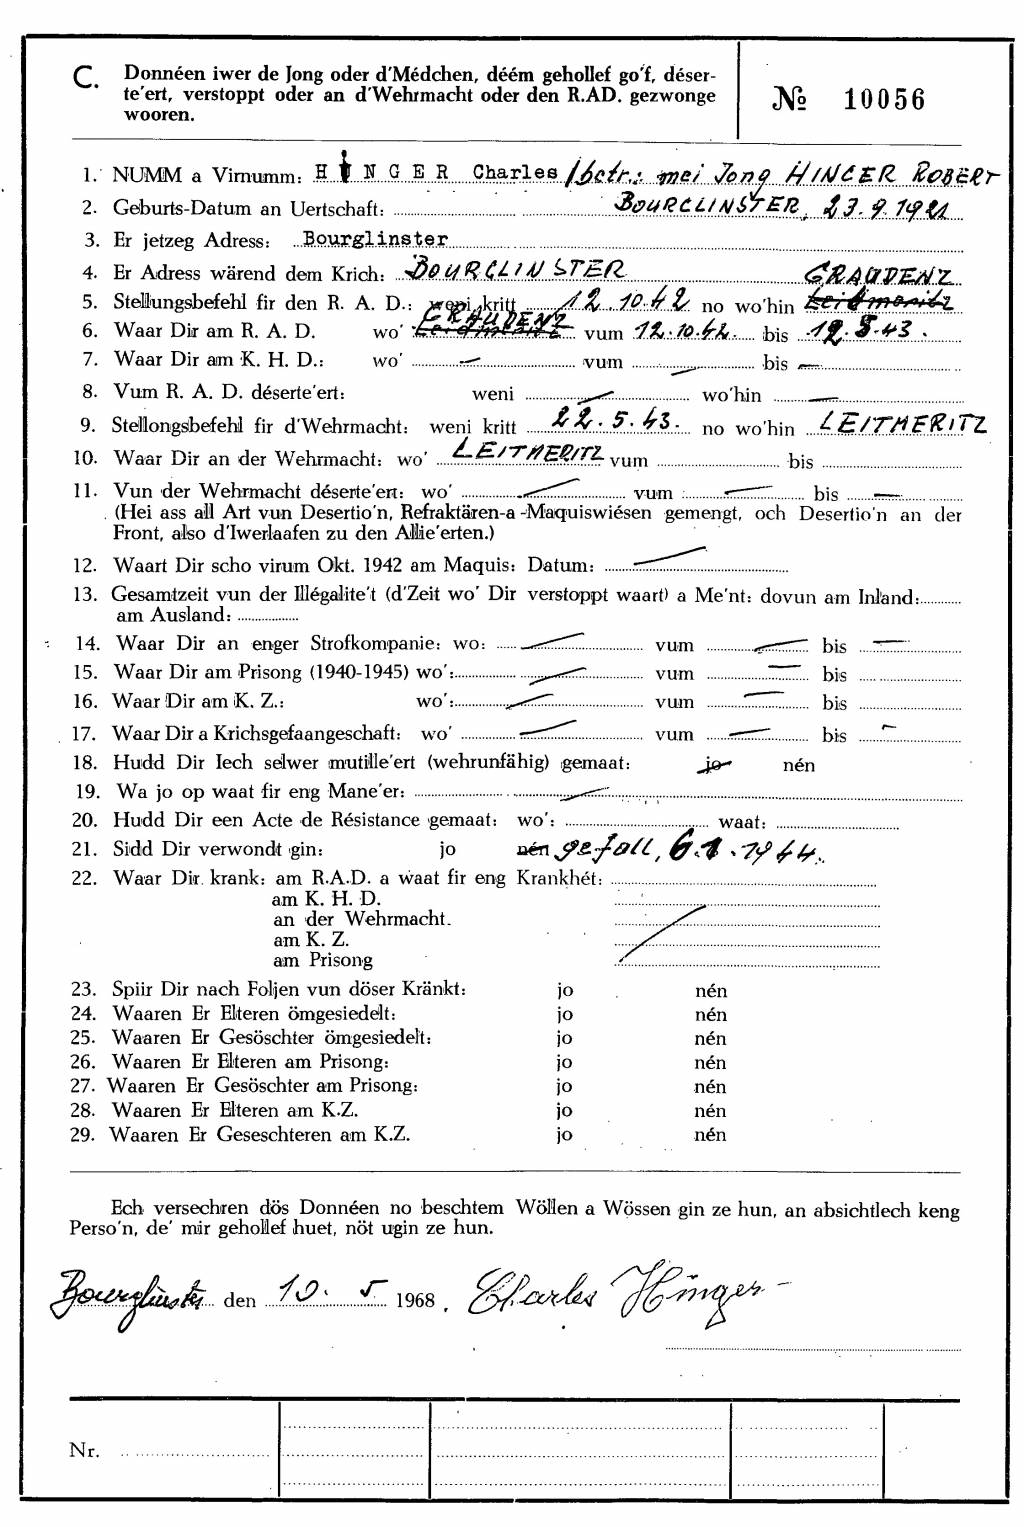 C. Donnéen iwer de Jong oder d'Médchen, déém gehollef go'f, déser-
te'ert, verstoppt oder an d'Wehrmacht oder den R.AD. gezwonge
wooren.
№ 10056
1. NUMM a Virnumm: HINGER Charles /betr.: mei Jong HINGER ROBERT
2. Geburts-Datum an Uertschaft: BOURGLINSTER, 23.9.1921
3. Er jetzeg Adress: Bourglinster
4. Er Adress wärend dem Krich: BOURGLINSTER
GRAUDENZ
5. Stellungsbefehl fir den R. A. D.: weni kritt 12.10.42 no wo'hin Leitmeritz
GRAUDENZ
6. Waar Dir am R. A. D. wo' Leitmeritz vum 12.10.42. bis 12.5.43.
7. Waar Dir am K. H. D.: wo' — vum — bis —
8. Vum R. A. D. déserte'ert: weni — wo'hin —
9. Stellongsbefehl fir d'Wehrmacht: weni kritt 22.5.43. no wo'hin LEITMERITZ
10. Waar Dir an der Wehrmacht: wo' LEITMERITZ vum bis
11. Vun der Wehrmacht déserte'ert: wo' — vum — bis —
(Hei ass all Art vun Desertio'n, Refraktären-a-Maquiswiésen gemengt, och Desertio'n an der
Front, also d'Iwerlaafen zu den Allie'erten.)
12. Waart Dir scho virum Okt. 1942 am Maquis: Datum: —
13. Gesamtzeit vun der Illégalite't (d'Zeit wo' Dir verstoppt waart) a Me'nt: dovun am Inland:
am Ausland:
14. Waar Dir an enger Strofkompanie: wo: — vum — bis —
15. Waar Dir am Prisong (1940-1945) wo': — vum — bis
16. Waar Dir am K. Z.: wo': — vum — bis
17. Waar Dir a Krichsgefaangeschaft: wo' — vum — bis -
18. Hudd Dir Iech selwer mutille'ert (wehrunfähig) gemaat: jo nén
19. Wa jo op waat fir eng Mane'er: —
20. Hudd Dir een Acte de Résistance gemaat: wo': waat:
21. Sidd Dir verwondt gin: jo nén gefall, 6.1.1944.
22. Waar Dir krank: am R.A.D. a waat fir eng Krankhét:
am K. H. D.
an der Wehrmacht.
am K. Z.
am Prisong
23. Spiir Dir nach Foljen vun döser Kränkt: jo nén
24. Waaren Er Elteren ömgesiedelt: jo nén
25. Waaren Er Gesöschter ömgesiedelt: jo nén
26. Waaren Er Elteren am Prisong: jo nén
27. Waaren Er Gesöschter am Prisong: jo nén
28. Waaren Er Elteren am K.Z. jo nén
29. Waaren Er Geseschteren am K.Z. jo nén
Ech versechren dös Donnéen no beschtem Wöllen a Wössen gin ze hun, an absichtlech keng
Perso'n, de' mir gehollef huet, nöt ugin ze hun.
Bourglinster den 10. 5 1968. Charles Hinger
Nr.